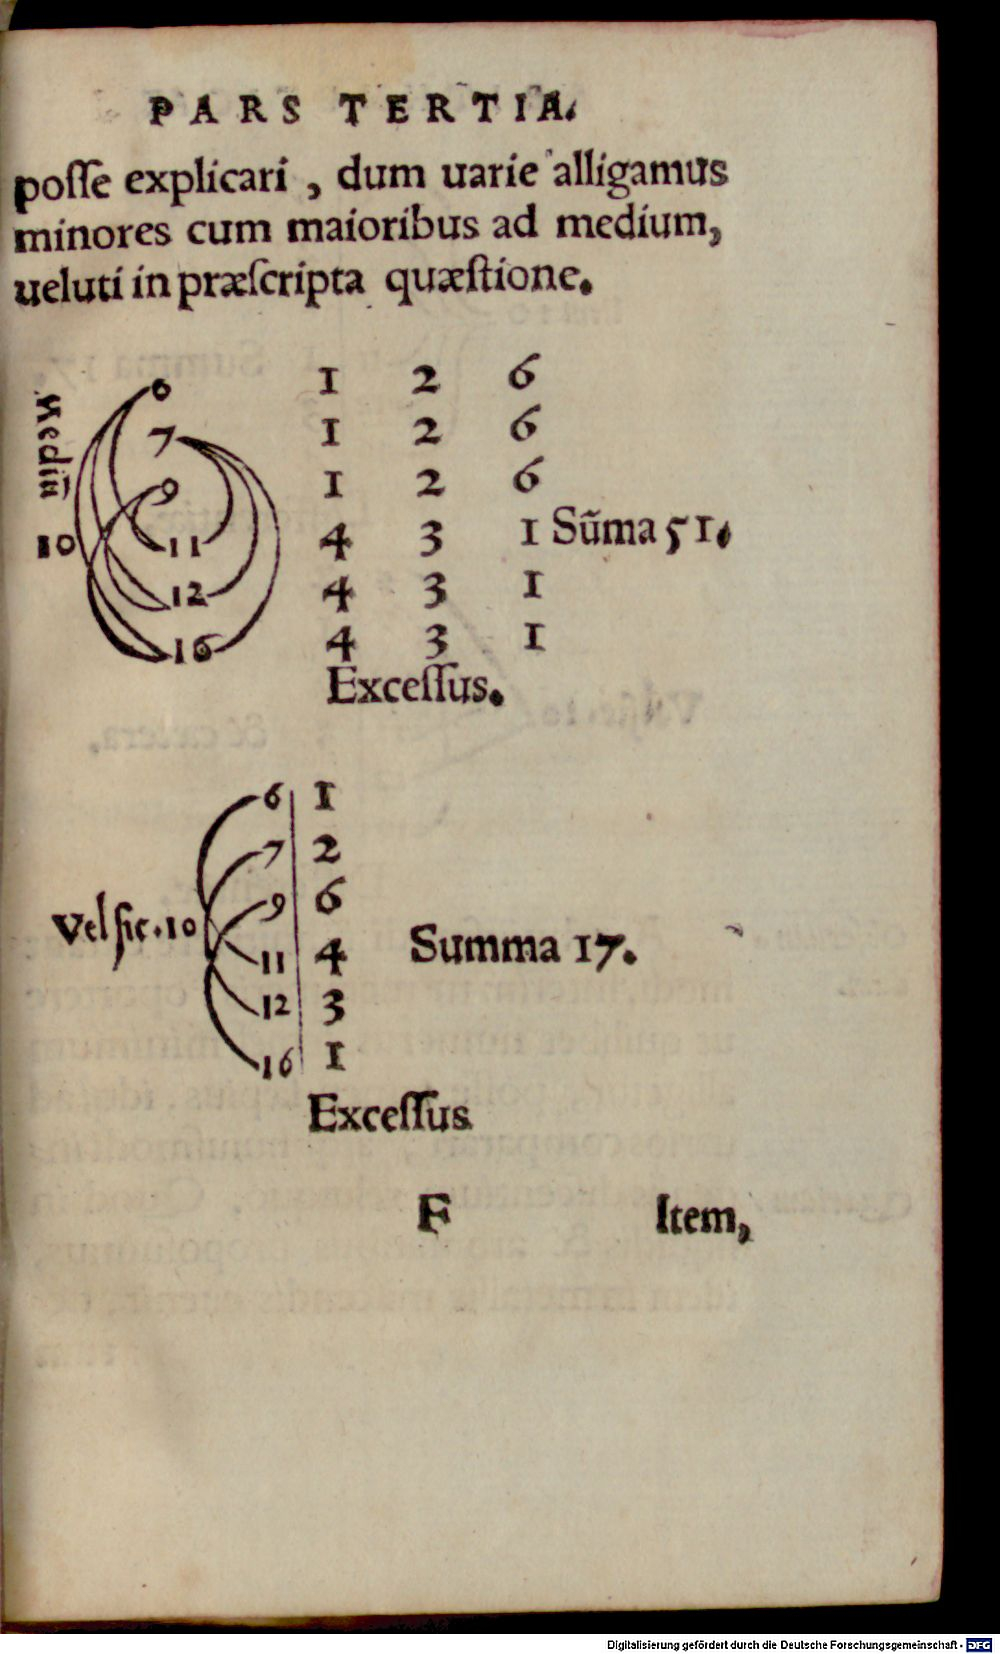 PARS TERTIA.
posse explicari, dum uarie alligamus
minores cum maioribus ad medium,
ueluti in præscripta quæstione.
Mediū
10
6 1 2 6
7 1 2 6
9 1 2 6
11 4 3 1 Sūma 51.
12 4 3 1
16 4 3 1
Excessus.
6 1
7 2
9 6
Vel sic. 10
11 4 Summa 17.
12 3
16 1
Excessus
F Item,
Digitalisierung gefördert durch die Deutsche Forschungsgemeinschaft - DFG